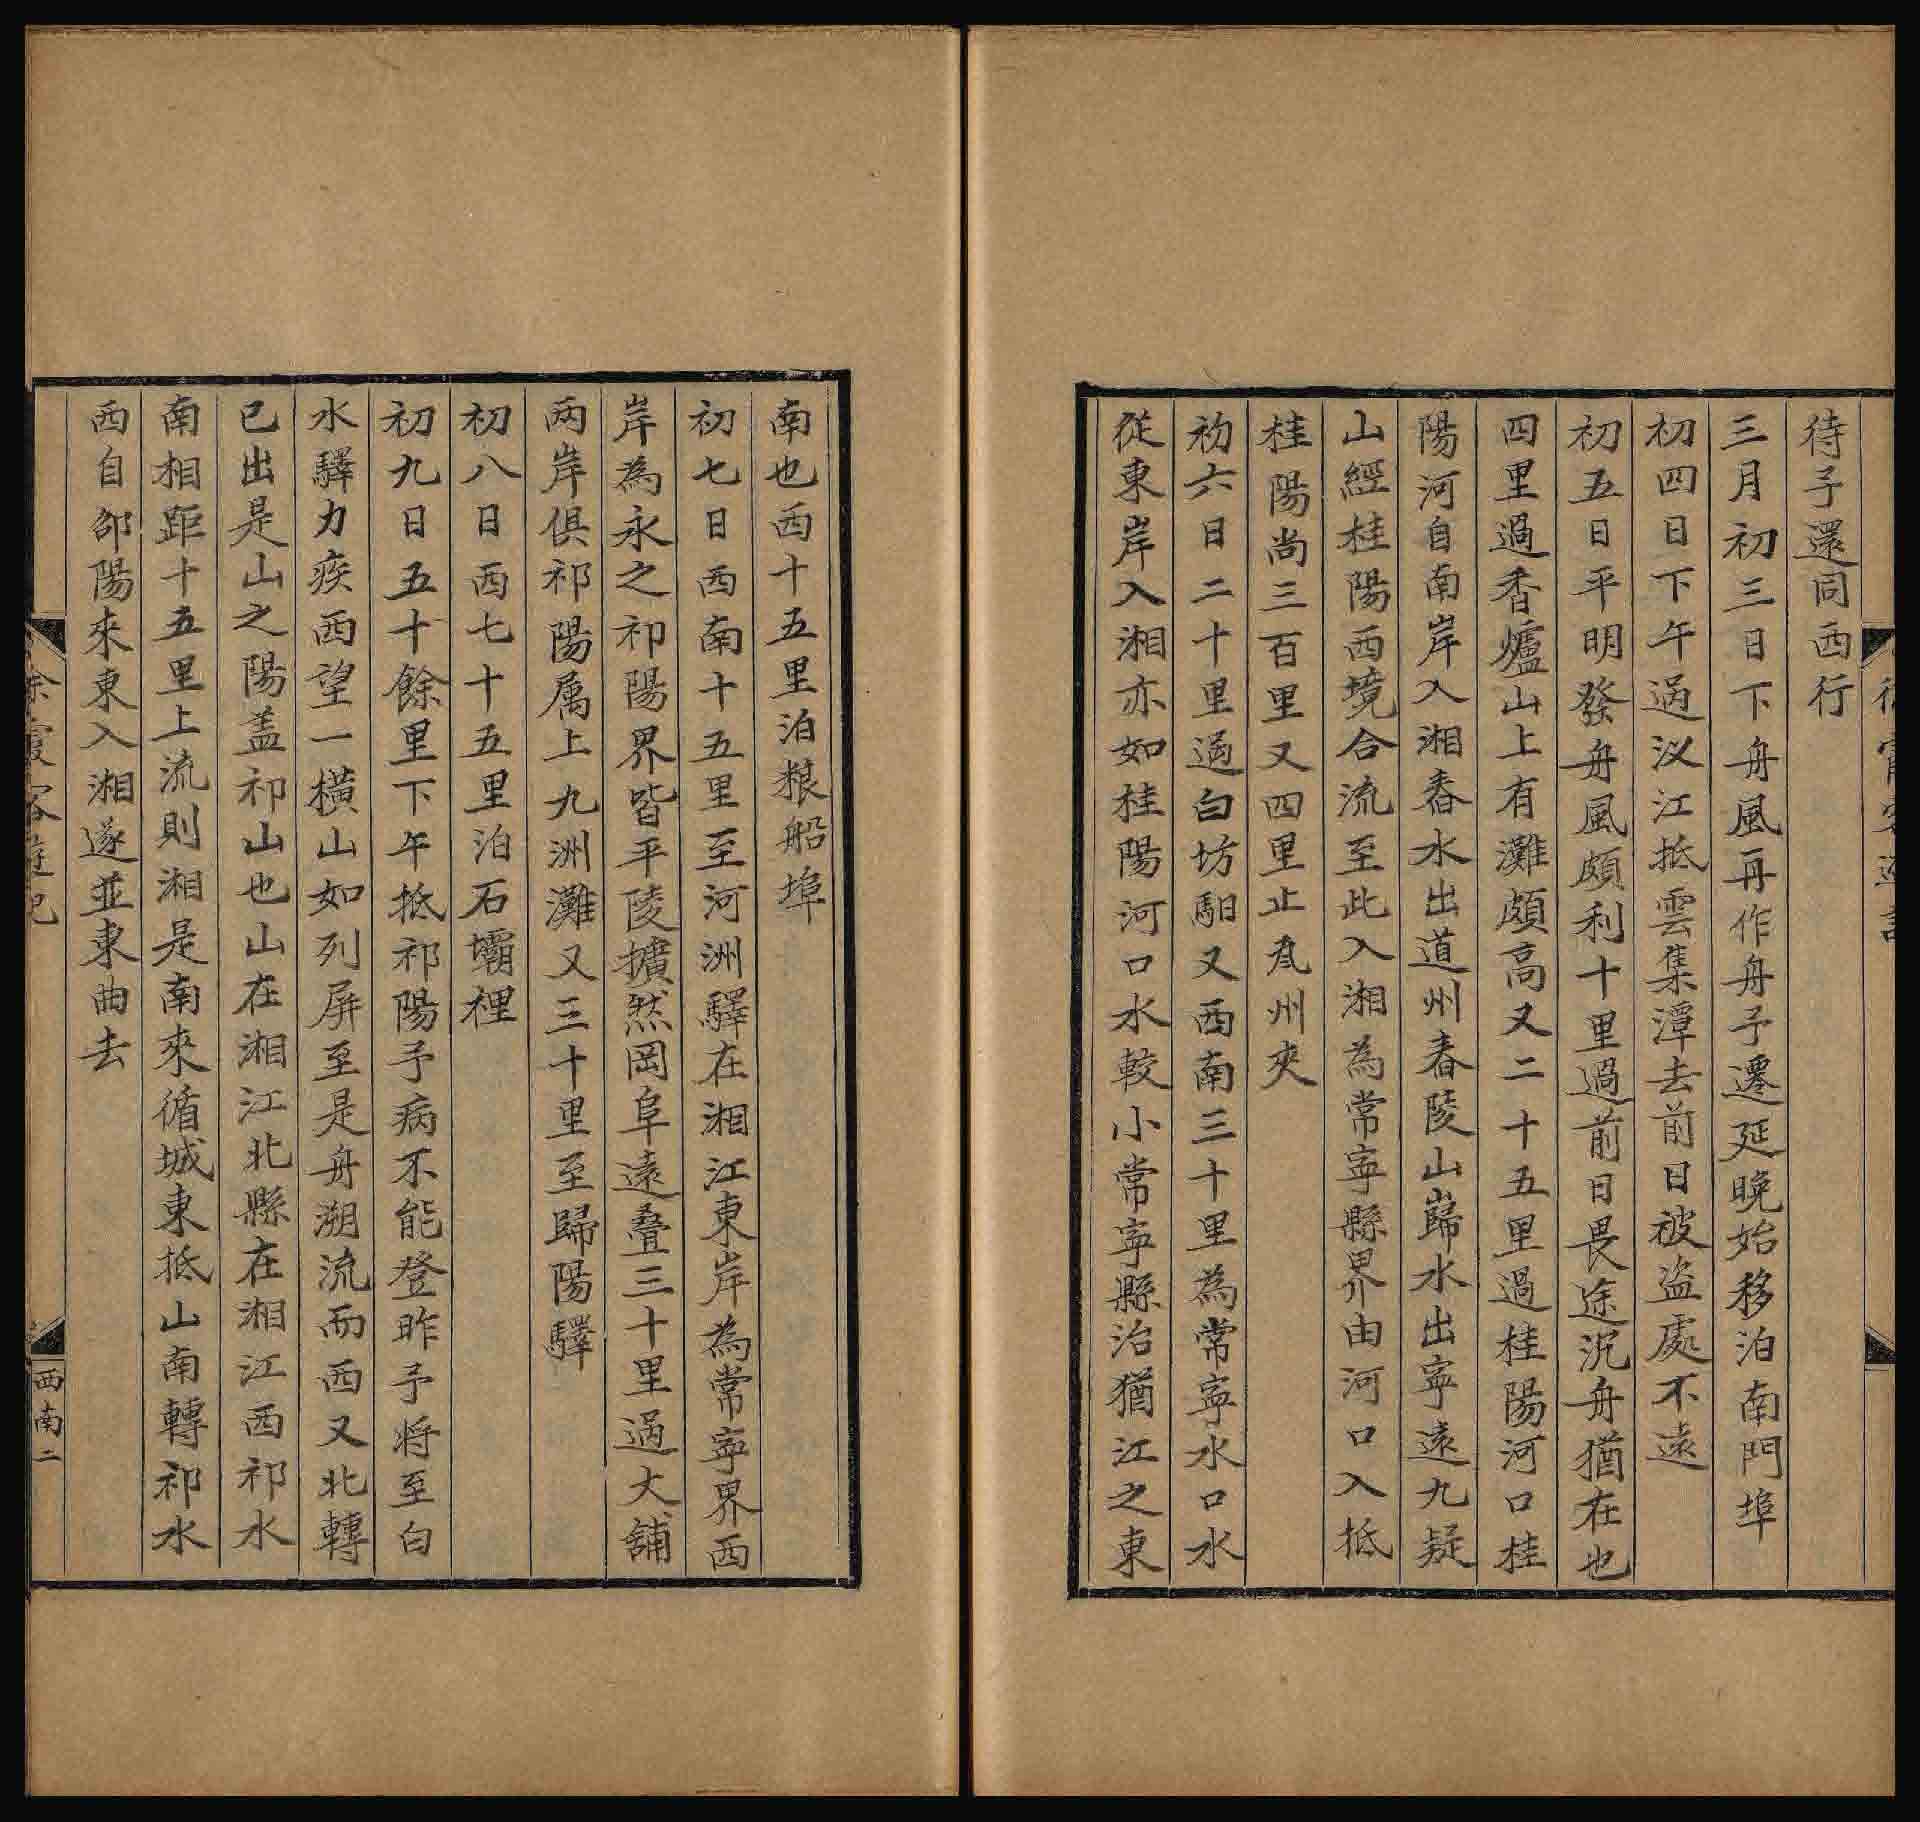 待予還同西行
三月初三日下舟風再作舟予遷延晚始移泊南門埠
初四日下午過汊江抵雲集潭去前日被盜處不遠
初五日平明發舟風頗利十里過前日畏途沉舟猶在也
四里過香爐山上有灘頗高又二十五里過桂陽河口桂
陽河自南岸入湘舂水出道州舂陵山歸水出寧遠九疑
山經桂陽西境合流至此入湘為常寧縣界由河口入抵
桂陽尚三百里又四里止㡳州夾
初六日二十里過白坊馹又西南三十里為常寧水口水
從東岸入湘亦如桂陽河口水較小常寧縣治猶江之東
南也西十五里泊粮船埠
初七日西南十五里至河洲驛在湘江東岸為常寧界西
岸為永之祁陽界皆平陵擴然岡阜遠疊三十里過大舖
兩岸俱祁陽属上九洲灘又三十里至歸陽驛
初八日西七十五里泊石壩裡
初九日五十餘里下午抵祁陽予病不能登昨予将至白
水驛力疾西望一橫山如列屏至是舟溯流而西又北轉
已出是山之陽盖祁山也山在湘江北縣在湘江西祁水
南相距十五里上流則湘是南來循城東抵山南轉祁水
西自邵陽來東入湘遂並東曲去
徐霞客遊記
西南二